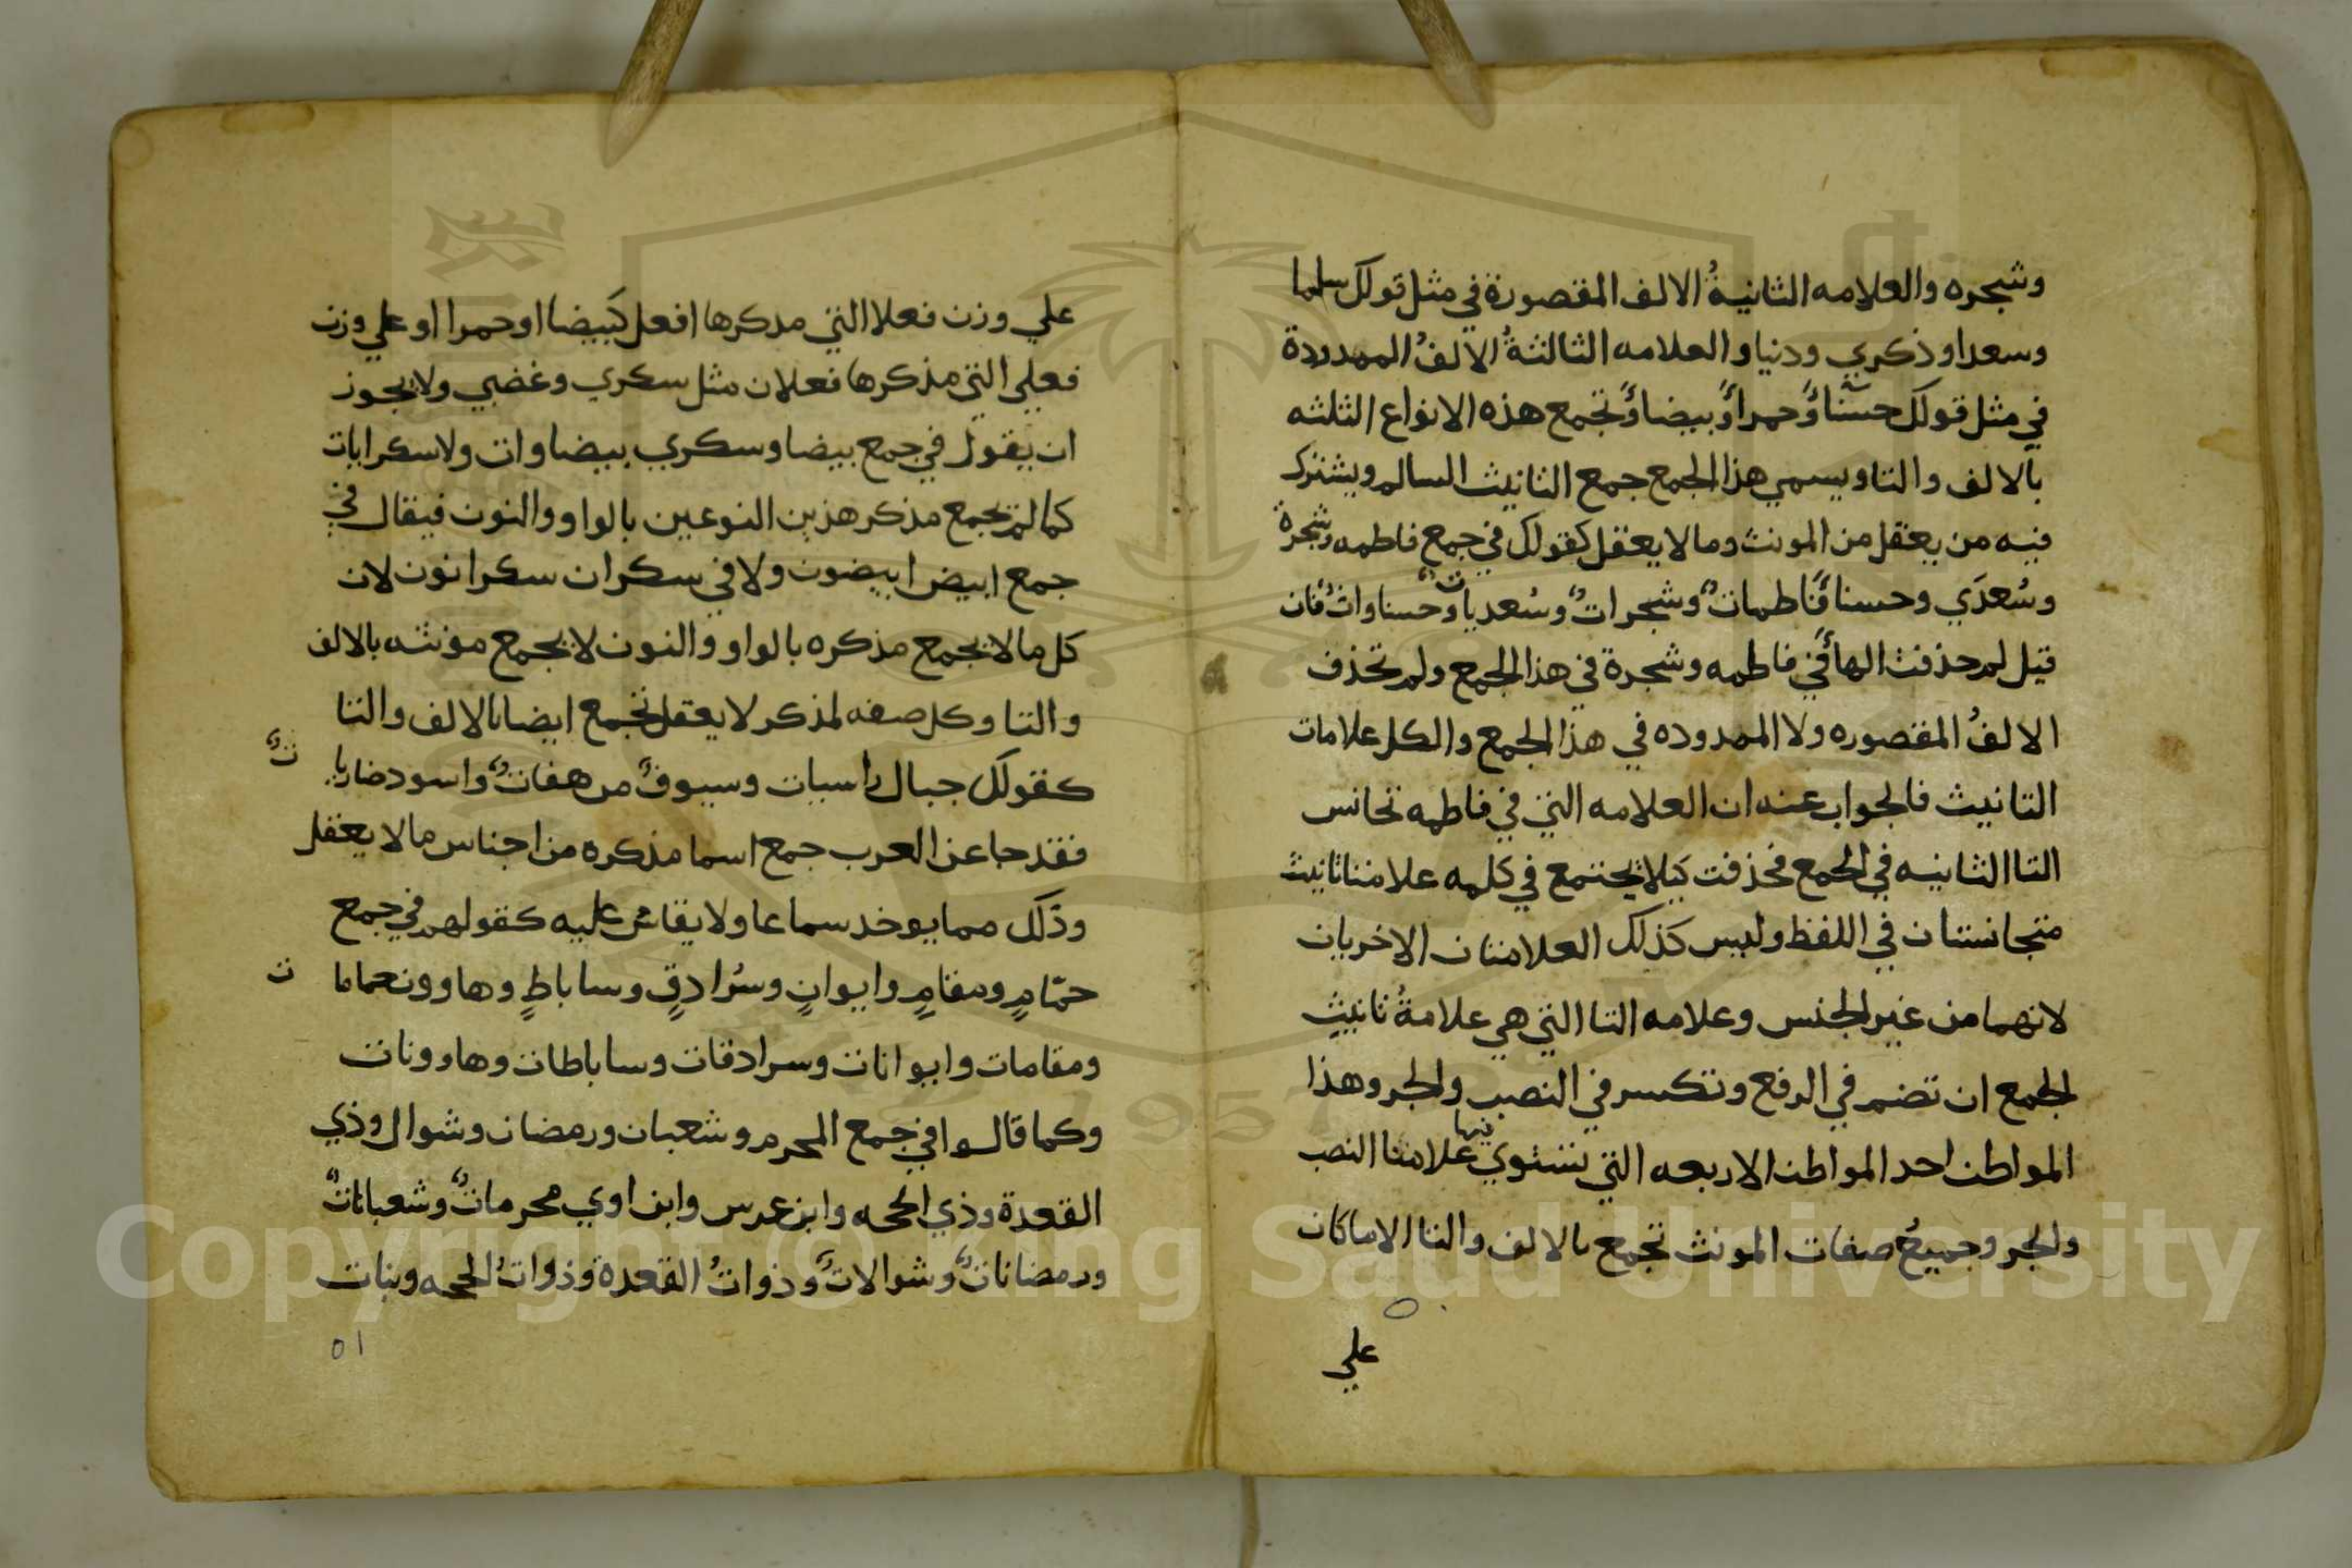 وشجره والعلامه الثانيةُ الالف المقصورة في مثل قولك سلما
وسعدا وذكري ودنيا والعلامه الثالثةُ الالفُ الممدودة
في مثل قولك حسنا وحمرا وبيضا وتجمع هذه الانواع الثلثه
بالالف والتا ويسمي هذا الجمع جمع التانيث السالم ويشترك
فيه من يعقل من المونث وما لا يعقل كقولك في جمع فاطمه وشجرة
وسُعدَي وحسنا فاطماتٌ وشجراتٌ وسُعدياتٌ وحسناواتٌ فان
قيل لم حذفت الها في فاطمه وشجرة في هذا الجمع ولم تحذف
الالفُ المقصوره ولا الممدوده في هذا الجمع والكل علامات
التانيث فالجواب عنه ان العلامه التي في فاطمه تجانس
التا الثانيه في الجمع فحذفت كيلا يجتمع في كلمه علامتا تانيث
متجانستان في اللفظ وليس كذلك العلامتان الاخريان
لانهما من غير الجنس وعلامه التا التي هي علامةُ تانيثِ
الجمع ان تضم في الرفع وتكسر في النصب والجر وهذا
المواطن احد المواطن الاربعه التي تستوي فيها علامتا النصب
والجر وجميعُ صفات المونث تجمع بالالف والتا الا ما كان
علي
علي وزن فعلا التي مذكرها افعل كبيضا او حمرا او علي وزن
فعلي التي مذكرها فعلان مثل سكري وغضبي ولا يجوز
ان يقول في جمع بيضا وسكري بيضاوات ولا سكرايات
كما لم يجمع مذكر هذين النوعين بالواو والنون فيقال في
جمع ابيض ابيضون ولا في سكران سكرانون لان
كل ما لا يجمع مذكره بالواو والنون لا يجمع مونثه بالالف
والتا وكل صفه لمذكر لا يعقل تجمع ايضا بالالف والتا
كقولك جبال راسيات وسيوفٌ مرهفاتٌ واسود ضاريا تٌ
فقد جا عن العرب جمع اسما مذكره من اجناس ما لا يعقل
وذلك مما يوخد سماعا ولا يقاس عليه كقولهم في جمع
حمّامٍ ومقامٍ وايوانٍ وسُرادقٍ وساباطٍ وهاوون حماما ت
ومقامات وايوانات وسرادقات وساباطات وهاوونات
وكما قالوا في جمع المحرم وشعبان ورمضان وشوال وذي
القعدة وذي الحجه وابن عرس وابن اوي محرماتٌ وشعباناتٌ
ورمضاناتٌ وشوالاتٌ وذواتُ القعدة وذواتُ الحجه وبنات
٥١
Copyright © King Saud University
1957